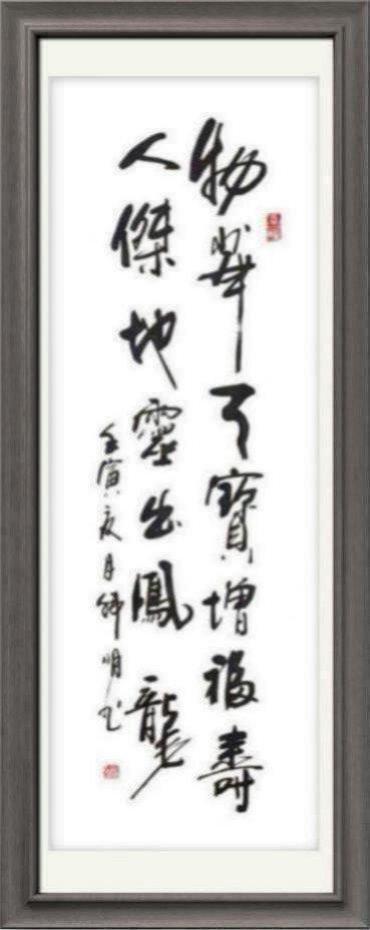 物華天寶增福壽
人傑地靈出鳳龍
壬寅夏月 明书